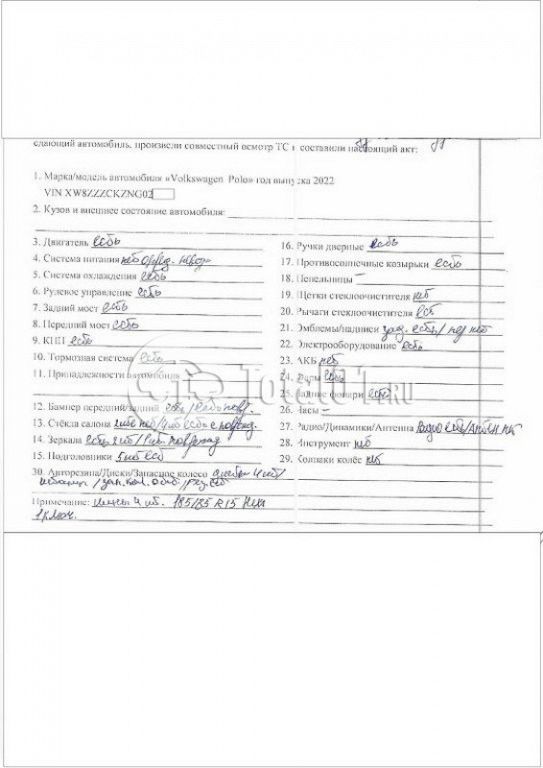 сдающий автомобиль, произвели совместный осмотр ТС и составили настоящий акт:
1. Марка/модель автомобиля «Volkswagen Polo» год выпуска 2022
VIN XW8ZZZCKZNG02
2. Кузов и внешнее состояние автомобиля:
3. Двигатель есть
4. Система питания
5. Система охлаждения есть
6. Рулевое управление есть
7. Задний мост есть
8. Передний мост есть
9. КПП есть
10. Тормозная система есть
11. Принадлежности автомобиля
12. Бампер передний/задний есть /
13. Стёкла салона
14. Зеркала есть 2 шт/
15. Подголовники 5 шт есть
16. Ручки дверные есть
17. Противосолнечные козырьки есть
18. Пепельницы –
19. Щетки стеклоочистителя нет
20. Рычаги стеклоочистителя есть
21. Эмблемы/надписи зад. есть/ пер нет
22. Электрооборудование есть
23. АКБ нет
24. Фары есть
25. Задние фонари есть
26. Часы –
27. Радио/Динамики/Антенна
28. Инструмент нет
29. Колпаки колёс нет
30. Авторезина/Диски/Запасное колесо 4 шт/
Примечание: шины 4 шт. R15
1 ключ.
Total01.RU